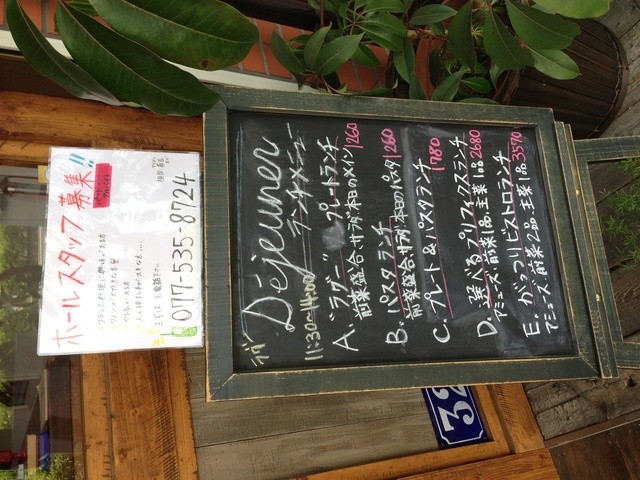 Déjeuner
ランチメニュー
11:30~14:00
A. "ラグー" プレートランチ 1260
前菜盛合、サラダ、本日のメイン
B. パスタランチ 1260
前菜盛合、サラダ、本日のパスタ
C. プレート&パスタランチ 1780
D. 選べるプリフィクスランチ
アミューズ、前菜1品、主菜1品 2680
E. がっつりビストロランチ
アミューズ、前菜2品、主菜1品 3570
ホールスタッフ募集!!
077-535-8724
32